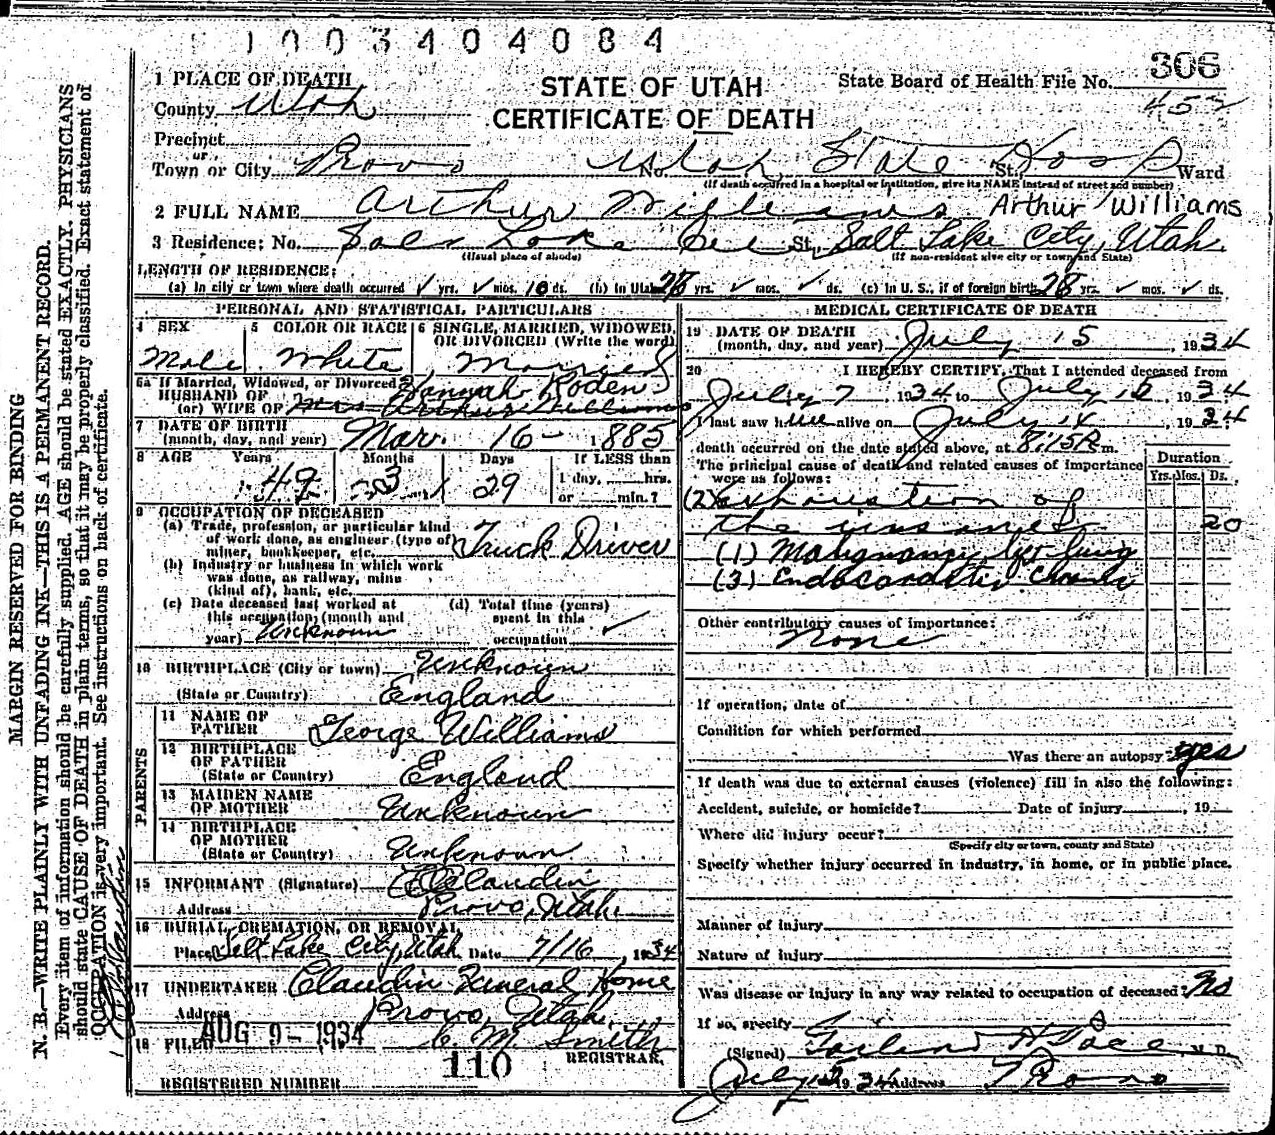 1003404084
306
1 PLACE OF DEATH
STATE OF UTAH
State Board of Health File No.
452
County Utah
CERTIFICATE OF DEATH
Precinct
or
Town or City Provo No. Utah State Hosp St. Ward
(If death occurred in a hospital or institution, give its NAME instead of street and number)
2 FULL NAME Arthur Williams Arthur Williams
3 Residence; No. Salt Lake St. Salt Lake City, Utah
(Usual place of abode) (If non-resident give city or town and State)
LENGTH OF RESIDENCE:
(a) In city or town where death occurred ✓ yrs. ✓ mos. 10 ds. (b) In Utah 28 yrs. ✓ mos. ✓ ds. (c) In U. S., if of foreign birth 28 yrs. ✓ mos. ✓ ds.
PERSONAL AND STATISTICAL PARTICULARS
4 SEX Male
5 COLOR OR RACE White
6 SINGLE, MARRIED, WIDOWED, OR DIVORCED (Write the word) Married
6a If Married, Widowed, or Divorced Hannah Roden
HUSBAND OF
(or) WIFE OF Mrs Arthur Williams
7 DATE OF BIRTH
(month, day, and year) Mar. 16 - 1885
8 AGE Years 49 Months 3 Days 29 If LESS than 1 day, hrs. or min.?
9 OCCUPATION OF DECEASED
(a) Trade, profession, or particular kind
of work done, as engineer (type of)
miner, bookkeeper, etc. Truck Driver
(b) Industry or business in which work
was done, as railway, mine
(kind of), bank, etc.
(c) Date deceased last worked at
this occupation (month and
year) Unknown
(d) Total time (years)
spent in this
occupation ✓
10 BIRTHPLACE (City or town) Unknown
(State or Country) England
PARENTS
11 NAME OF
FATHER George Williams
12 BIRTHPLACE
OF FATHER
(State or Country) England
13 MAIDEN NAME
OF MOTHER Unknown
14 BIRTHPLACE
OF MOTHER
(State or Country) Unknown
15 INFORMANT (Signature) Claudin
Address Provo, Utah
16 BURIAL, CREMATION, OR REMOVAL
Place Salt Lake City, Utah Date 7/16, 1934
17 UNDERTAKER Claudin Funeral Home
Address Provo, Utah
18 FILED AUG 9 - 1934 C. M. Smith
REGISTRAR
110
REGISTERED NUMBER
MEDICAL CERTIFICATE OF DEATH
19 DATE OF DEATH
(month, day, and year) July 15, 1934
20 I HEREBY CERTIFY, That I attended deceased from
July 7 1934 to July 15 1934
I last saw him alive on July 14, 1934
death occurred on the date stated above, at 8:15P m.
The principal cause of death and related causes of importance
were as follows:
Duration
Yrs. Mos. Ds.
(2) Exhaustion of
the insane 20
(1) Malignancy left lung
(3) Endocarditis Chronic
Other contributory causes of importance:
None
If operation, date of
Condition for which performed
Was there an autopsy yes
If death was due to external causes (violence) fill in also the following:
Accident, suicide, or homicide? Date of injury , 19
Where did injury occur?
(Specify city or town, county and State)
Specify whether injury occurred in industry, in home, or in public place.
Manner of injury
Nature of injury
Was disease or injury in any way related to occupation of deceased? No
If so, specify
(Signed) Garland H Pace M. D.
July 1934 Address Provo
MARGIN RESERVED FOR BINDING
N. B.—WRITE PLAINLY WITH UNFADING INK—THIS IS A PERMANENT RECORD.
Every item of information should be carefully supplied. AGE should be stated EXACTLY. PHYSICIANS
should state CAUSE OF DEATH in plain terms, so that it may be properly classified. Exact statement of
OCCUPATION is very important. See instructions on back of certificate.